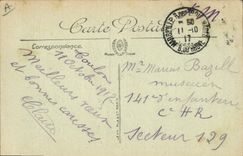 Carte Postale
Correspondance
Toulon
1 Octobre 1917
Meilleurs vœux
et bonnes caresses
Claire
11-10
17
Mr Marius Bazille
musicien
141e d'infanterie
C H R
Secteur 129